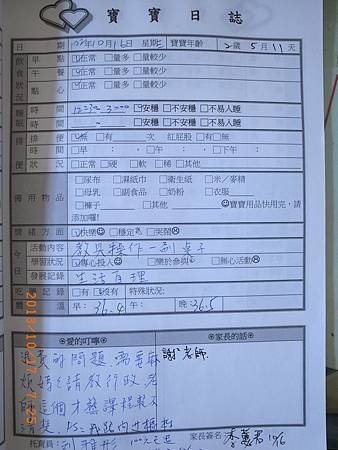 寶寶日誌
日期 102年10月16日 星期三 寶寶年齡 2歲5月11天
飲食狀況
早點 ☑正常 □量多 □量較少
午餐 ☑正常 □量多 □量較少
點心 ☑正常 □量多 □量較少
睡眠
時間 12:30~3:00 □安穩 □不安穩 □不易入睡
時間 ~ □安穩 □不安穩 □不易入睡
排便
排便 ☑無 □有 次 紅屁股 □有□無
時間 □早: , □午: , □下午:
狀況 □正常 □硬 □軟 □稀 □其他
備用物品
□尿布 □濕紙巾 □衛生紙 □米/麥精
□母乳 □副食品 □奶粉 □衣服
□褲子 □其他 ☺寶寶用品快用完,請添加喔!
情緒方面 ☑快樂☺ □穩定 □哭鬧
今日學習
活動內容 教具操作-刮桌子
學習狀況 ☑專心投入 □樂於參與 □無心活動
發展記錄 生活自理
吃藥記錄 □有□沒有 特殊狀況:
體溫 早:36.4 午: 晚:36.5
2013/10/17
⊗愛的叮嚀⊗ ⊗家長的話⊗
的問題,需要麻
煩媽咪請教行政老
師這個才藝課程較
清楚,
謝老師.
托育員
家長簽名 10/16